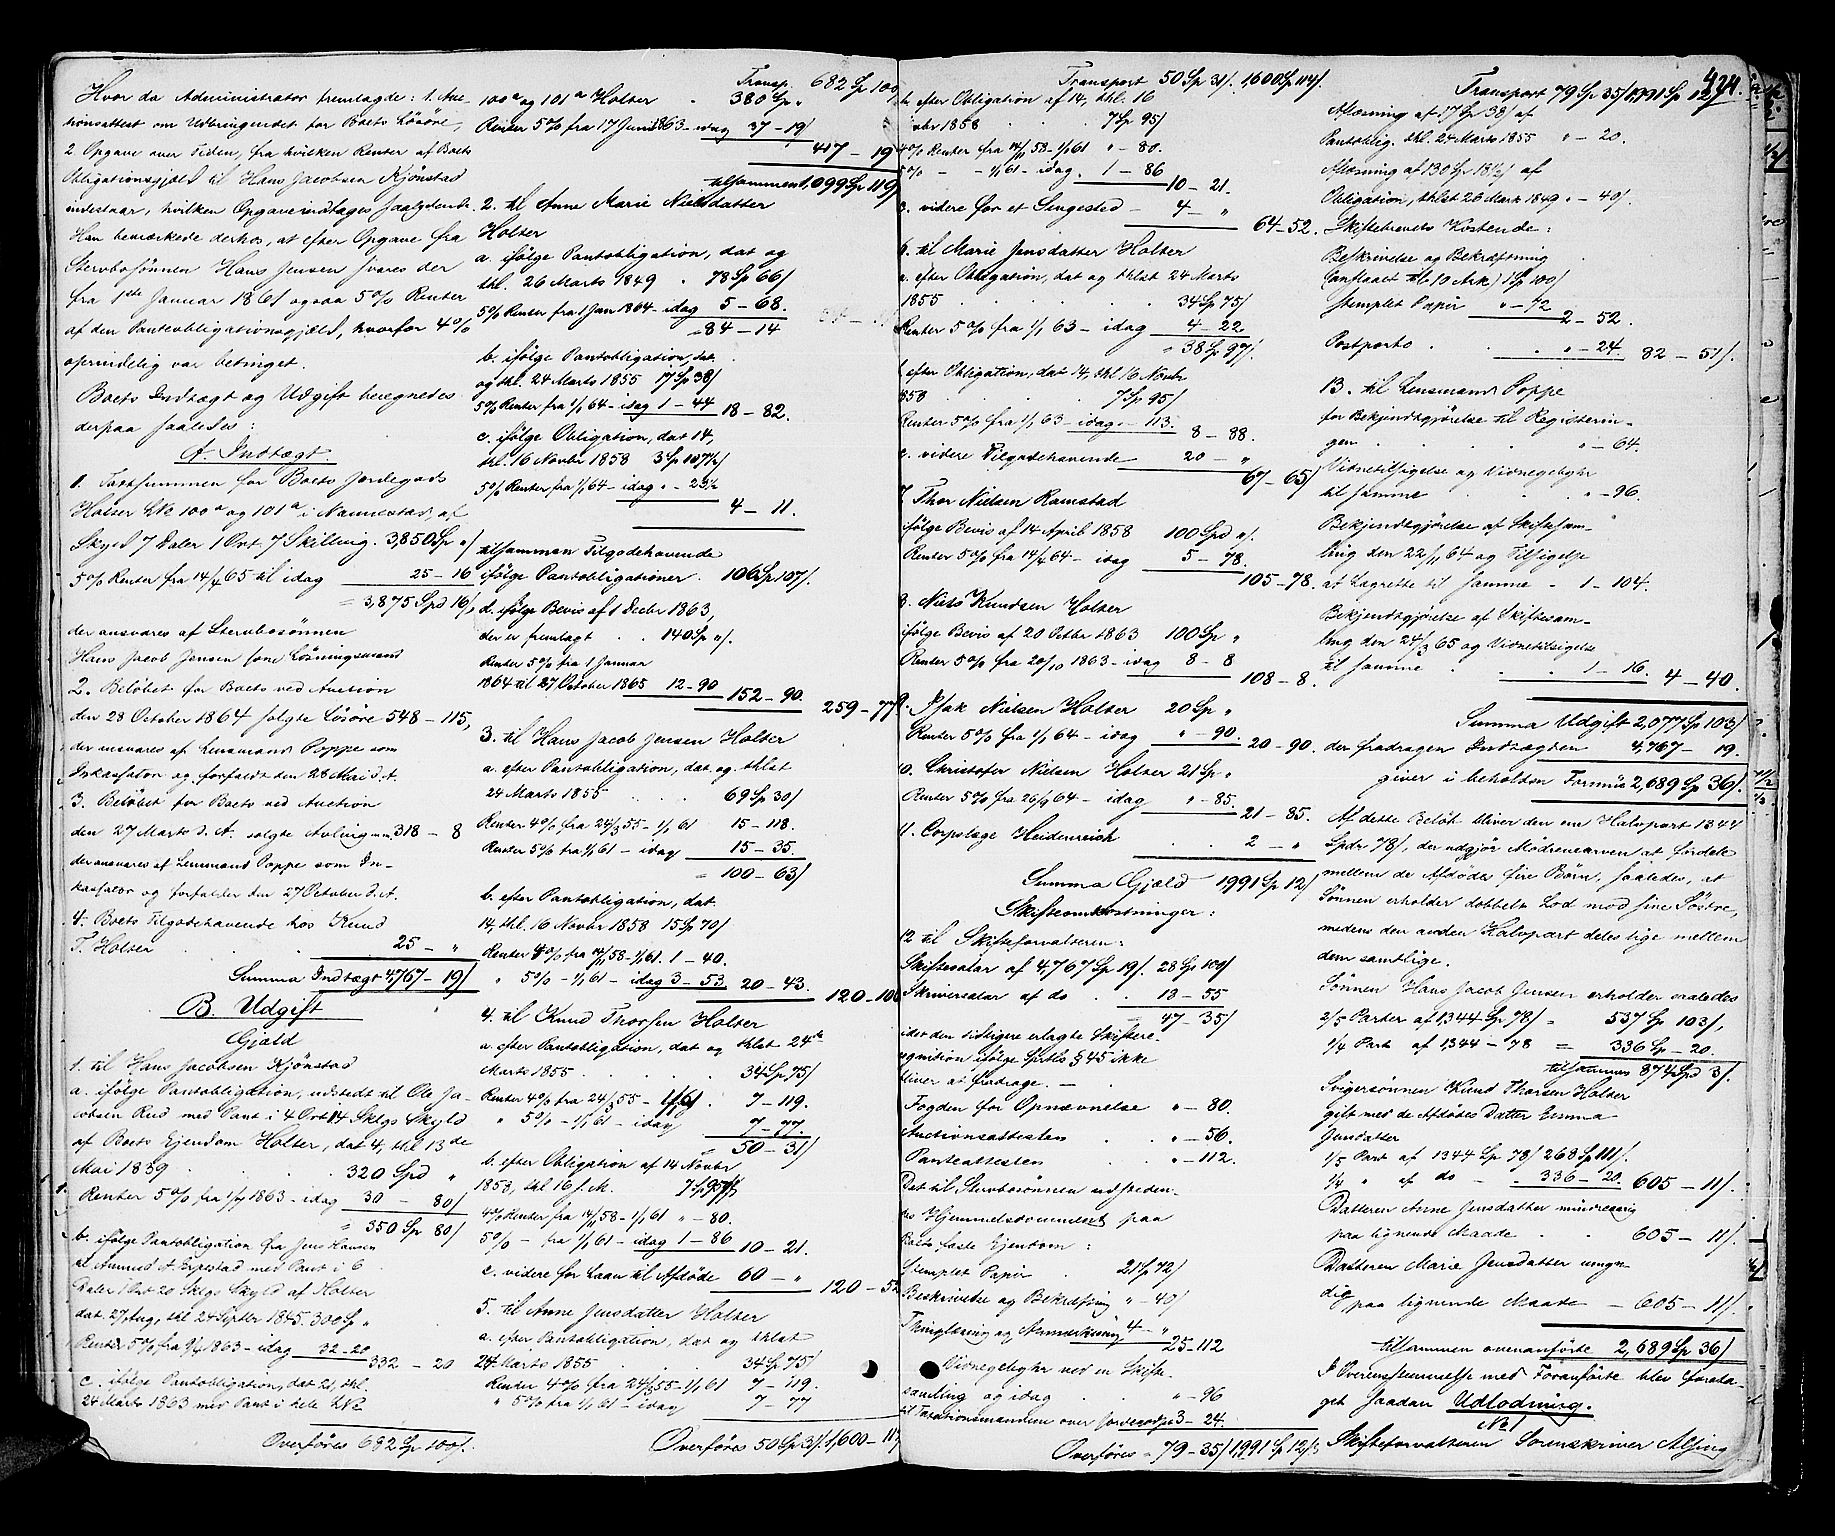 Hvor da Administrator fremlagde: 1. Auc-
tionsattest om Udbringendet for Boets Løsøre,
2 Opgave over Tiden, fra hvilken Renter af Boets
Obligationsgjæld til Hans Jacobsen Kjønstad
indestaar, hvilken Opgave indtages saalydende.
Han bemærkede derhos, at efter Opgave fra
Stervbosønnen Hans Jensen svares der
fra 1ste Januar 1861 ogsaa 5% Renter
af den Panteobligationsgjæld, hvorfor 4%
oprindelig var betinget.
Boets Indtægt og Udgift beregnedes
derpaa saaledes:
A. Indtægt
1. Taxtsummen for Boets Jordegods
Holter LNo 100a og 101a i Nannestad, af
Skyld 7 Daler 1 Ort 7 Skilling. 3,850 Sp "/
5% Renter fra 14/4 65 til idag 25 - 16
= 3,875 Spd 16/
der ansvares af Stervbosønnen
Hans Jacob Jensen som Løsningsmand
2. Beløbet for Boets ved Auction
den 28 October 1864 solgte Løsøre 548 - 115,
der ansvares af Lensmand Poppe som
Inkassator og forfaldt den 28 Mai d. A.
3. Beløbet for Boets ved Auction
den 27 Marts d. A. solgte Avling m.m. 318 - 8
der ansvares af Lensmand Poppe som In-
kassator og forfalder den 27 October d. A.
4. Boets Tilgodehavende hos Knud
T. Holter 25 - "
Summa Indtægt 4767 - 19/
B. Udgift
Gjæld
1. til Hans Jacobsen Kjønstad
a. ifølge Pantobligation, udstedt til Ole Ja-
cobsen Rud med Pant i 4 Ort 14 Sklgs Skyld
af Boets Eiendom Holter, dat 4, thl 13de
Mai 1839 320 Spd "
Renter 5% fra 1/7 1863 - idag 30 - 80/
= 350 Sp 80/
b. ifølge Pantobligation fra Jens Hansen
til Amund A. med Pant i 6
Daler 1 Ort 20 Sklgs Skyld af Holter
dat. 27 Aug, thl 24 Septbr 1845. 300 Sp "
Renter 5% fra 1863 - idag 32 - 20
332 - 20
c. ifølge Pantobligation, dat 21, thl.
24 Marts 1863 med Pant i hele LNo
Overføres 682 Sp 100/.
Transp. 682 Sp 100/
100a og 101a Holter 380 Sp "
Renter 5% fra 17 Juni 1863 - idag 37 - 19/
417 - 19
tilsammen 1,099 Sp 119/
2. til Anne Marie Nielsdatter
Holter
a. ifølge Pantobligation, dat og
thl. 26 Marts 1849 78 Sp 66/
5% Renter fra 1 Jan 1864 - idag 5 - 68.
= 84 - 14
b. ifølge Pantobligation, dat.
og thl. 24 Marts 1855 17 Sp 38/
5% Renter fra 1/1 64 - idag 1 - 44 18 - 82.
c. ifølge Obligation, dat 14,
thl. 16 Novbr 1858 3 Sp 107½/
5% Renter fra 1/1 64 - idag " - 23½
4 - 11.
tilsammen Tilgodehavende
ifølge Pantobligationer. 106 Sp 107/.
d. ifølge Bevis af 1 Decbr 1863,
der er fremlagt 140 Sp "/.
Renter 5% fra 1 Januar
1864 til 27 October 1865 12 - 90
152 - 90.
259 - 77
3. til Hans Jacob Jensen Holter
a. efter Pantobligation, dat. og thlst
24 Marts 1855 69 Sp 30/
Renter 4% fra 24/3 55 - 1/1 61 15 - 118.
Renter 5% fra 1/1 61 - idag 15 - 35.
= 100 - 63/
b. efter Pantobligation, dat
14, thl. 16 Novbr 1858 15 Sp 70/
Renter 4% fra 14/11 58 - 1/1 61. 1 - 40.
" 5% - 1/1 61 - idag 3 - 53 20 - 43.
120 - 106
4. til Knud Thorsen Holter
a. efter Pantobligation, dat og thlst 24de
Marts 1855 34 Sp 75/
Renter 4% fra 24/3 55 - 1/1 61. 7 - 119.
" 5% - 1/1 61 - idag 7 - 77.
50 - 31/
b. efter Obligation af 14 Novbr
1858, thl 16 s. M. 7 Sp 95/
4% Renter fra 14/11 58 - 1/1 61 " - 80.
5% - fra 1/1 61 - idag 1 - 86
10 - 21.
c. videre for Laan til Afdøde 60 - "
120 - 52
5. til Anne Jensdatter Holter
a. efter Pantobligation, dat og thlst
24 Marts 1855 34 Sp 75/
Renter 4% fra 24/3 55 - 1/1 61 7 - 119.
" 5% fra 1/1 61 - idag 7 - 77
Overføres 50 Sp 31/. 1,600 - 114/
Transport 50 Sp 31/. 1,600 Sp 114/.
b. efter Obligation af 14, thl. 16
Novbr 1858 7 Sp 95/
4% Renter fra 14/11 58 - 1/1 61 " - 80.
5% - - 1/1 61 - idag. 1 - 86
10 - 21.
c. videre for et Sengested 4 - "
64 - 52.
6. til Marie Jensdatter Holter
a. efter Obligation, dat og thlst 24 Marts
1855 34 Sp 75/
Renter 5% fra 1/1 63 - idag 4 - 22
= 38 Sp 97/.
b. efter Obligation, dat 14, thl 16 Novbr
1858 7 Sp 95/
Renter 5% fra 1/1 63 - idag " - 113.
8 - 88.
c. videre Tilgodehavende 20 - "
67 - 65/
7. Thor Nielsen Ramstad
ifølge Bevis af 14 April 1858 100 Spd "/.
Renter 5% fra 14/4 64 - idag 5 - 78.
105 - 78.
8. Niels Knudsen Holter
ifølge Bevis af 20 Octbr 1863 100 Sp "
Renter 5% fra 20/10 1863 - idag 8 - 8
108 - 8.
9. Isak Nielsen Holter 20 Sp "
Renter 5% fra 1/1 64 - idag " - 90.
20 - 90.
10. Christofer Nielsen Holter 21 Sp "
Renter 5% fra 26/9 64 - idag " - 85.
21 - 85.
11. Corpslæge Heidenreich 2 - "
Summa Gjæld 1991 Sp 12/
Skifteomkostninger:
12 til Skifteforvalteren:
Skiftesalar af 4,767 Sp 19/. 28 Sp 100/
Skriversalar af do 18 - 55
= 47 - 35/
idet den tidligere erlagte Skiftere-
cognition ifølge Sprtls § 45 ikke
bliver at fradrage. -
Fogden for Opnævnelse " - 80.
Auctionsattesten " - 56.
Panteattesten " - 112.
Det til Stervbosønnen udsteden-
des Hjemmelsdocument paa
Boets faste Eiendom:
Stemplet Papir 21 Sp 72/
Beskrivelse og Bekræftning " - 40/
Thinglæsning og Anmærkning 4 - "
25 - 112
Vidnegebyhr ved en Skifte-
samling og idag " - 96
til Taxationsmændene over Jordegodset 3 - 24.
Overføres = 79 - 35/ 1,991 Sp 12/
424.
Transport 79 Sp 35/ 1,991 Sp 12/
Aflæsning af 17 Sp 38/ af
Pantoblig. thl. 24 Marts 1855 " - 20.
Aflæsning af 130 Sp 18½/ af
Obligation, thlst 26 Mark 1849 " - 40/.
Skiftebrevets Kostende:
Beskrivelse og Bekræftning
(antaget til 10 Ark) 1 Sp 100/
stemplet Papir " - 72
2 - 52.
Postporto " - 24.
82 - 51/
13. til Lensmand Poppe
for Bekjendtgjørelse til Registerin-
gen " - 64.
Vidnetilsigelse og Vidnegebyhr
til samme " - 96.
Bekjendtgjørelse af Skiftesam-
ling den 22/11 64 og Tilsigelse
at Lagrette til samme 1 - 104.
Bekjendtgjørelse af Skiftesam-
ling den 24/3 65 og Vidnetilsigelse
til samme 1 - 16.
4 - 40.
Summa Udgift 2,077 Sp 103/
der fradragen Indtægten 4,767 - 19.
giver i beholden Formue 2,689 Sp 36/.
Af dette Beløb bliver den ene Halvpart 1344
Spdr 78/, der udgjør Mødrenearven at fordele
mellem de Afdødes fire Børn, saaledes, at
Sønnen erholder dobbelt Lod mod sine Søstre,
medens den anden Halvpart deles lige mellem
dem samtlige.
Sønnen Hans Jacob Jensen erholder saaledes
2/5 Parter af 1344 Sp 78/ = 537 Sp 103/,
1/4 Part af 1344 - 78 = 336 Sp - 20.
tilsammen 874 Spd 3/.
Svigersønnen Knud Thorsen Holter
gift med de Afdødes Datter Emma
Jensdatter
1/5 Part af 1344 Sp 78/ 268 Sp 111/.
1/4 " af do - 336 - 20. 605 - 11/.
Datteren Anne Jensdatter mindreaarig
paa lignende Maade 605 - 11/.
Datteren Marie Jensdatter umyn-
dig
paa lignende Maade - 605 - 11/.
tilsammen ovenanførte 2,689 Sp 36/
I Overensstemmelse med Foranførte blev foreta-
get saadan Udlodning.
No 1
Skifteforvalteren Sorenskriver Alsing